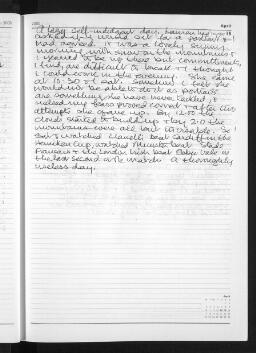 April
A lazy self-indulgent day. Lauren
asked me if I would sit for a portrait & I
had agreed. It was a lovely sunny
morning with snow on the mountains &
I yearned to be up there but commitments,
I find, are difficult to break & I thought
I could come in the evening. She came
at 10.30 & sat. Somehow I felt she
wouldn't be able to do it as portraits
are something she have never tackled, &
indeed my fears proved correct & after two
attempts she gave up. By 12.00 the
clouds started to build up & by 2.0 the
mountains were all but invisible. So I
sat & watched Llanelli beat Cardiff in the
Heineken Cup, watched Munster beat Stade
Francais & the London Irish beat
the last second of the match. A thoroughly
useless day.